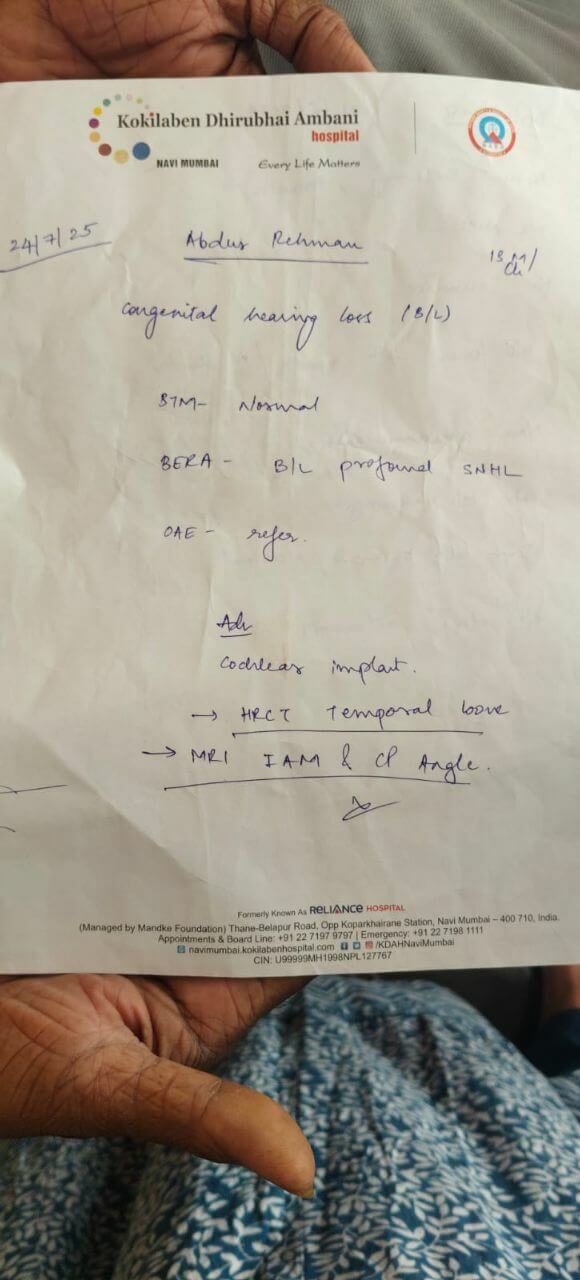 Kokilaben Dhirubhai Ambani
hospital
NAVI MUMBAI Every Life Matters
24/7/25
Abdur Rehman
Congenital hearing loss (B/L)
BTM- Normal
BERA - B/L profound SNHL
OAE - refer.
Adv
Cochlear implant.
→ HRCT Temporal bone
→ MRI IAM & CP Angle.
Formerly Known As RELIANCE HOSPITAL
(Managed by Mandke Foundation) Thane-Belapur Road, Opp Koparkhairane Station, Navi Mumbai – 400 710, India.
Appointments & Board Line: +91 22 7197 9797 | Emergency: +91 22 7198 1111
navimumbai.kokilabenhospital.com /KDAHNaviMumbai
CIN: U99999MH1998NPL127767